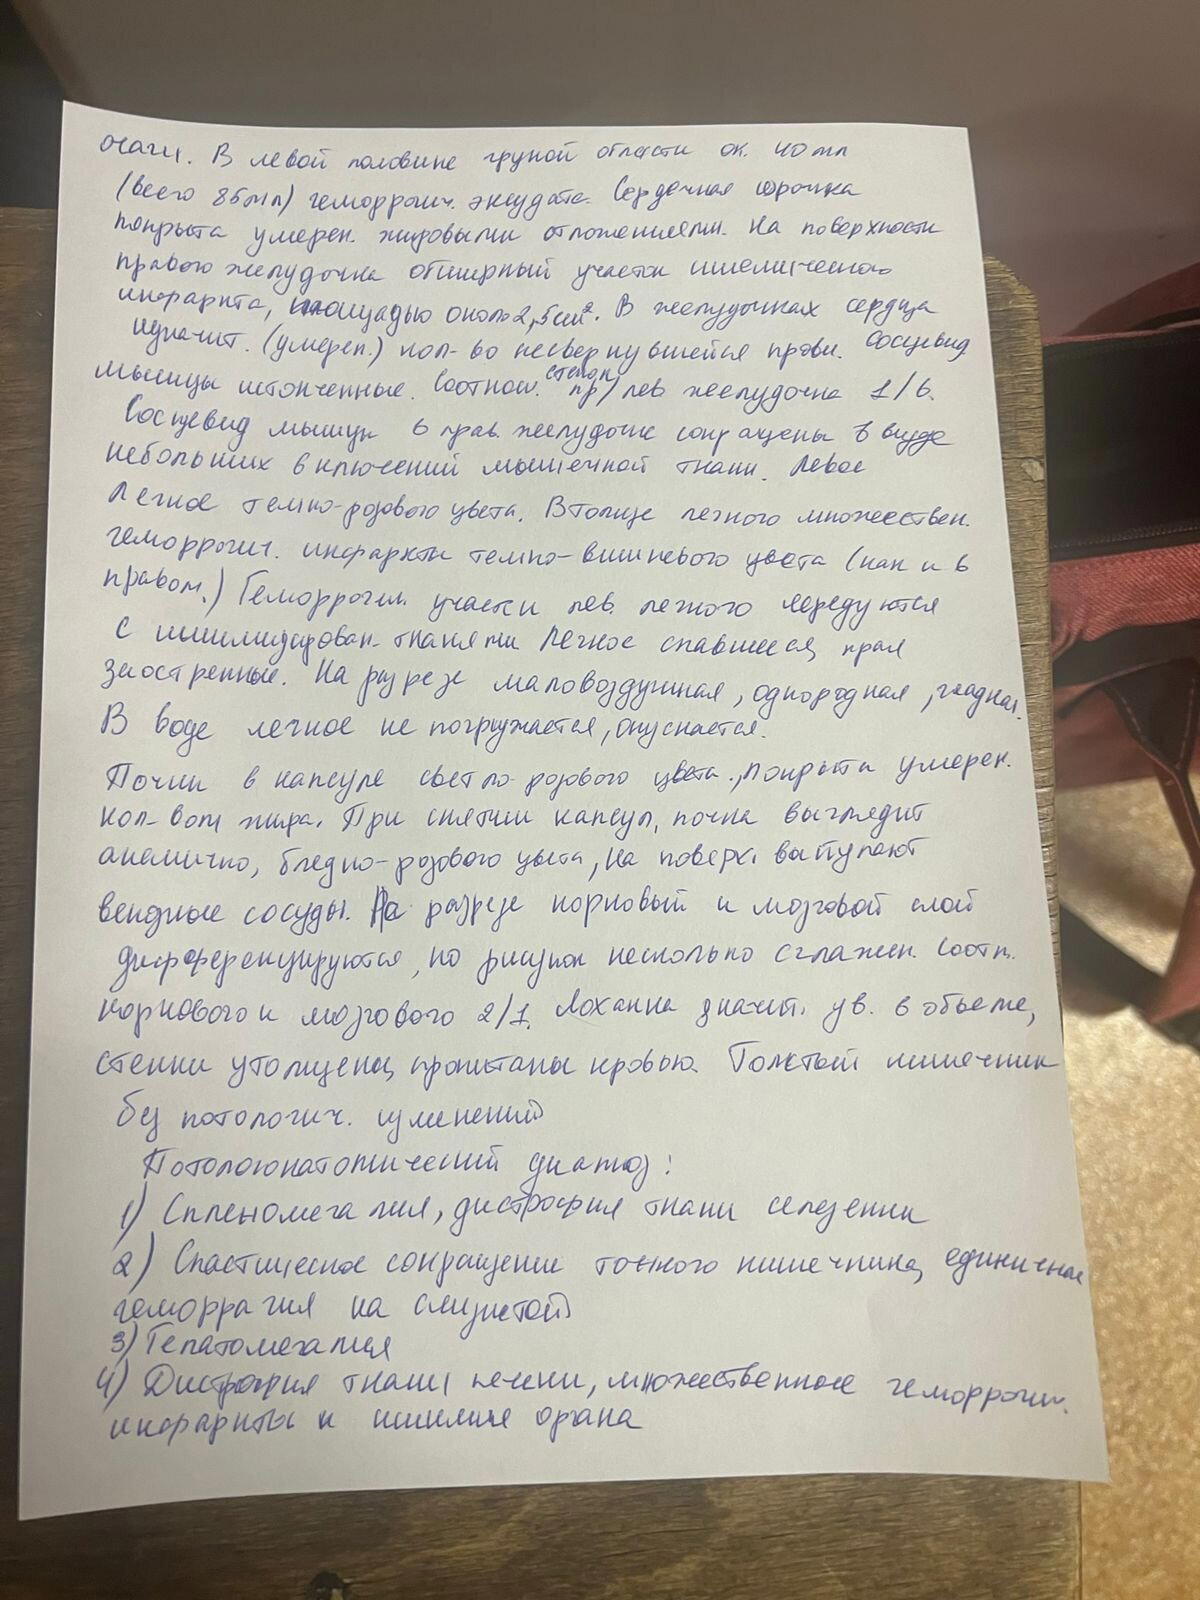 очаги. В левой половине грудной области ок. 40 мл
(всего 85мл) геморрагич. экссудата. Сердечная сорочка
покрыта умерен. жировыми отложениями. На поверхности
правого желудочка обширный участок ишемического
инфаркта, площадью около 2,5см². В желудочках сердца
(умерен.) кол-во несвернувшейся крови. Сосцевид
мышцы истонченные. Соотнош. стенок пр/лев желудочка 1/6.
Сосцевид мышцы в прав. желудочке сокращены в виде
небольших включений мышечной ткани. Левое
Легкое темно-розового цвета. В толще легкого множествен.
геморрогич. инфаркты темно-вишневого цвета (как и в
правом.) Геморрогич. участки лев. легкого чередуются
с тканями Легкое спавшееся, края
заостренные. На разрезе маловоздушная, однородная, гладкая.
В воде легкое не погружается, опускается.
Почки в капсуле светло-розового цвета., покрыта умерен.
кол-вом жира. При снятии капсул, почка выглядит
анемично, бледно-розового цвета, на поверх. выступают
венозные сосуды. На разрезе корковый и мозговой слой
дифференцируются, но рисунок несколько сглажен. Соотн.
коркового и мозгового 2/1. Лоханка значит. ув. в объеме,
стенки утолщены, пропитаны кровью. Толстый кишечник
без патологич. изменений
Потологонатомический диагноз:
1) Спленомегалия, дистрофия ткани селезенки
2) Спастическое сокращение тонкого кишечника, единичная
геморрагия на слизистой
3) Гепатомегалия
4) Дистрофия ткани печени, множественные геморрогич.
инфаркты и ишемия органа